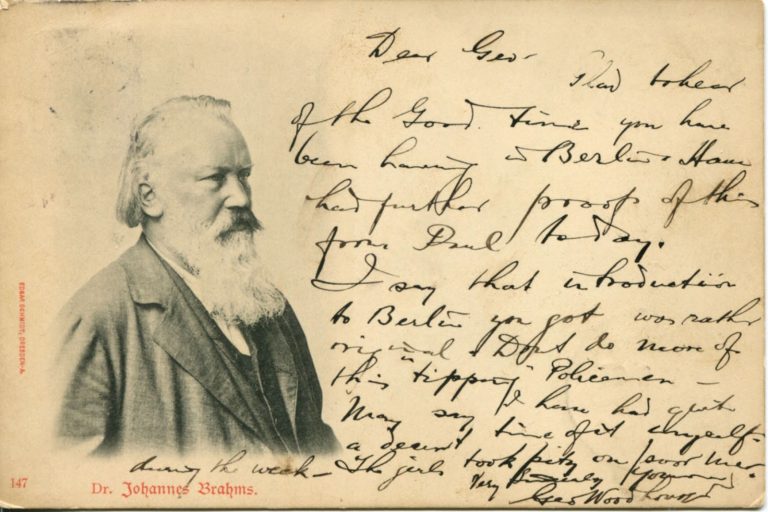 Dear Geo-
Glad to hear
of the Good time you have
been having in Berlin. Have
had further proofs of this
from Paul today.
I say that introduction
to Berlin you got was rather
original. Don't do more of
this "tipping" Policemen -
May say I have had quite
a decent time of it myself-
during the week - The girls took pity on poor me.
Very
Geo Wood
EDGAR SCHMIDT, DRESDEN-A.
147
Dr. Johannes Brahms.